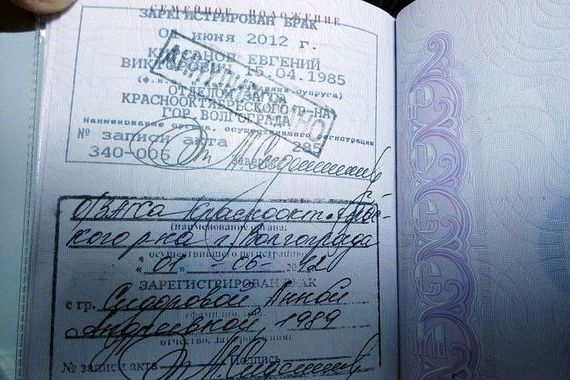 СЕМЕЙНОЕ ПОЛОЖЕНИЕ
ЗАРЕГИСТРИРОВАН БРАК
01 июня 2012 г.
ЕВГЕНИЙ
15.04.1985
ОТДЕЛОМ
КРАСНООКТЯБРЬСКОГО Р-НА
ГОР. ВОЛГОГРАДА
Наименование органа, осуществившего регистрации
№ записи акта 285
340-006
О/ЗАГСа Краснооктябрьс-
кого р-на г. Волгограда
(наименование органа,
осуществившего регистрацию)
«01» - 06 - 2012
ЗАРЕГИСТРИРОВАН БРАК
с гр. Сидоровой Анной
Андреевной 1989
отчество, дата
№ записи акта Подпись